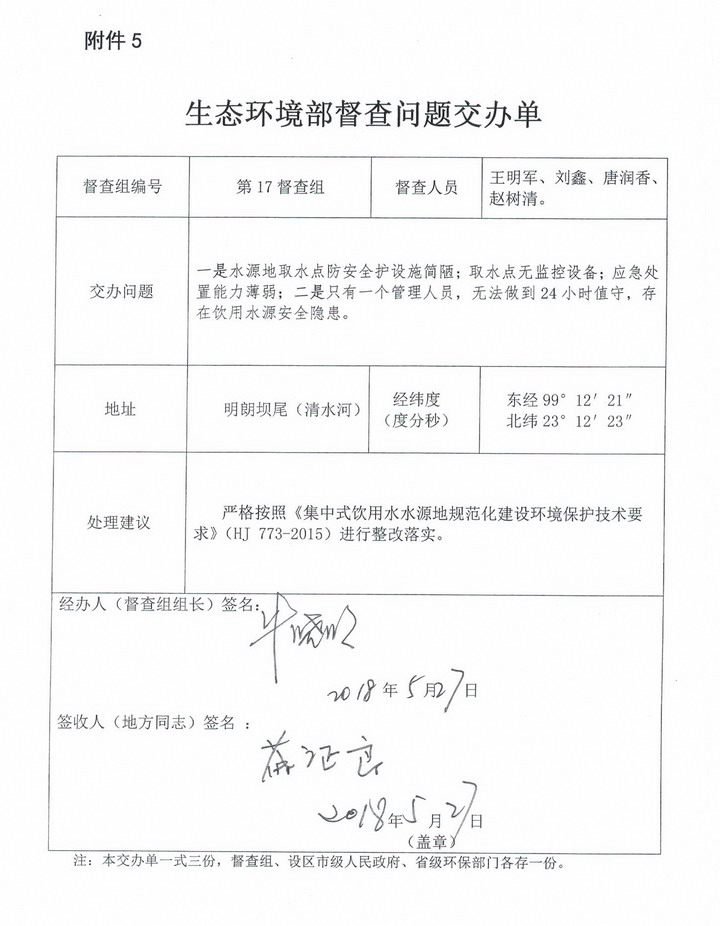 附件 5
生态环境部督查问题交办单
督查组编号 第 17 督查组 督查人员 王明军、刘鑫、唐润香、
赵树清。
交办问题
一是水源地取水点防安全护设施简陋；取水点无监控设备；应急处
置能力薄弱；二是只有一个管理人员，无法做到 24 小时值守，存
在饮用水源安全隐患。
地址 明朗坝尾（清水河） 经纬度
（度分秒）
东经 99° 12′ 21″
北纬 23° 12′ 23″
处理建议
严格按照《集中式饮用水水源地规范化建设环境保护技术要
求》（HJ 773-2015）进行整改落实。
经办人（督查组组长）签名：
2018 年 5 月 27 日
签收人（地方同志）签名 ：
2018 年 5 月 27 日
（盖章）
注：本交办单一式三份，督查组、设区市级人民政府、省级环保部门各存一份。